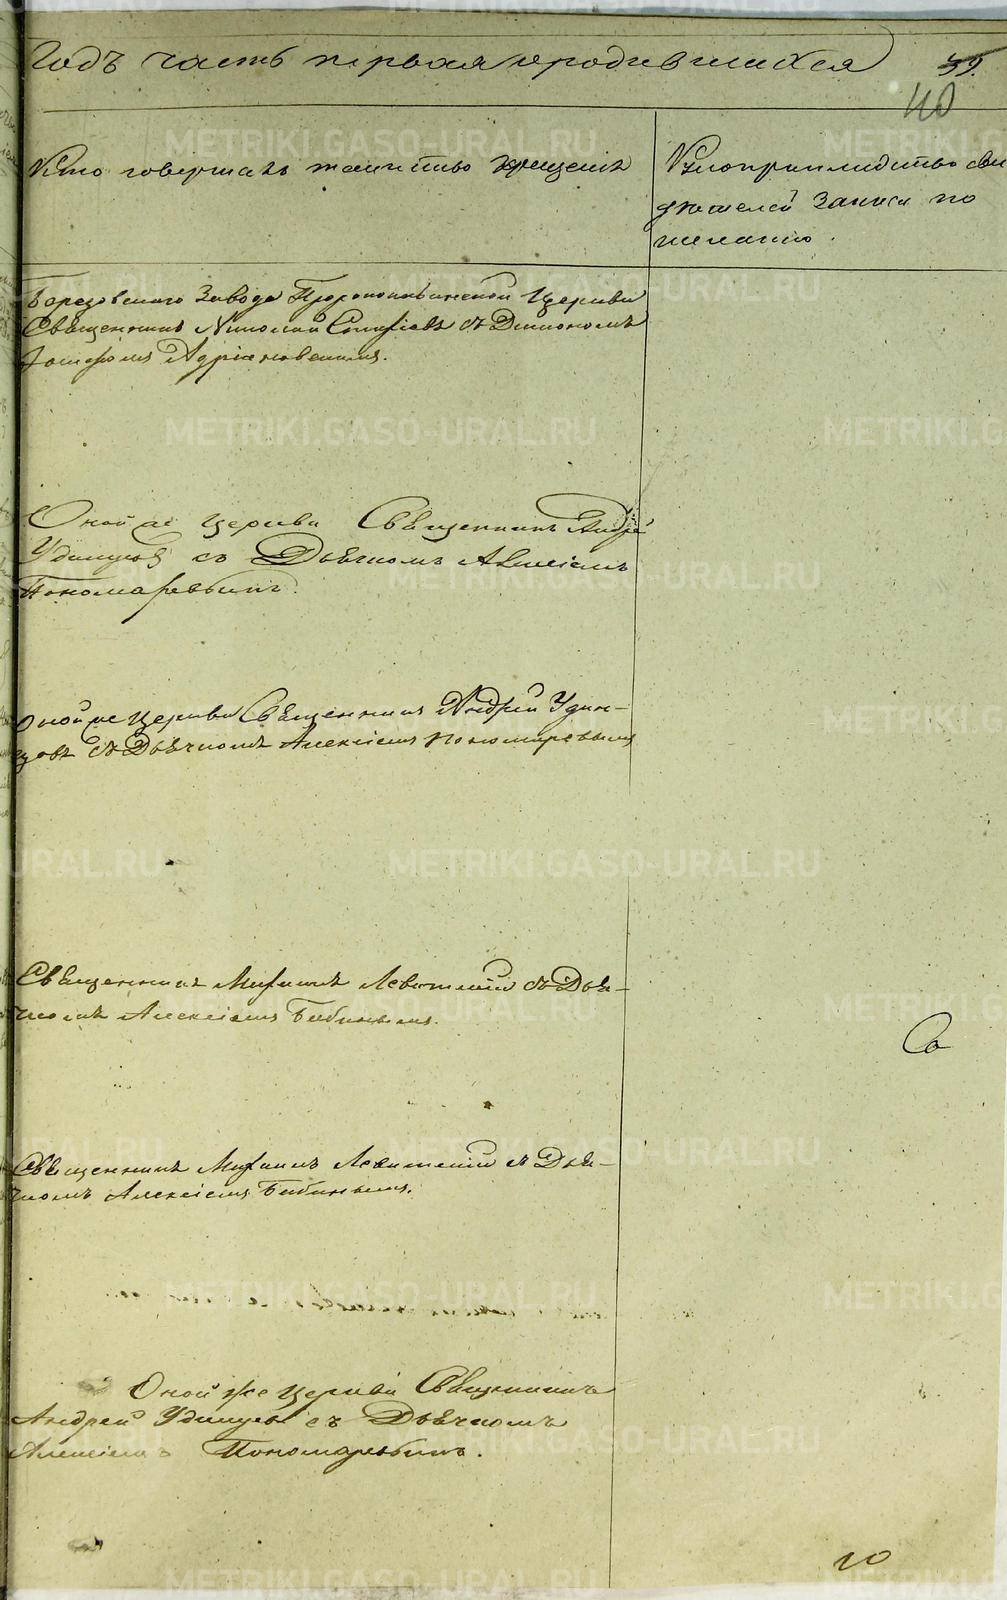 Годъ часть первая о родившихся 39.
40
Кто совершалъ таинство крещенiя
Рукоприкладство сви
дѣтелей записи по
желанiю.
Березовскаго Завода Пророкоильинской Церкви
Священникъ Николай с Дiакономъ
Iосифомъ Адрiановскимъ.
Оной же Церкви Священникъ Андрей
Удинцовъ съ Дьячкомъ Алексiемъ
Пономаревымъ.
Оной же Церкви Священникъ Андрей Удин-
цовъ съ Дьячкомъ Алексiемъ Пономаревымъ
Священникъ Михаилъ Левитскiй съ Дья-
чкомъ Алексiемъ Бабинымъ.
Священникъ Михаилъ Левитскiй съ Дья-
чкомъ Алексiемъ Бабинымъ.
Оной же Церкви Священникъ
Андрей Удинцовъ съ Дьячкомъ
Алексiемъ Пономаревымъ.
METRIKI.GASO-URAL.RU